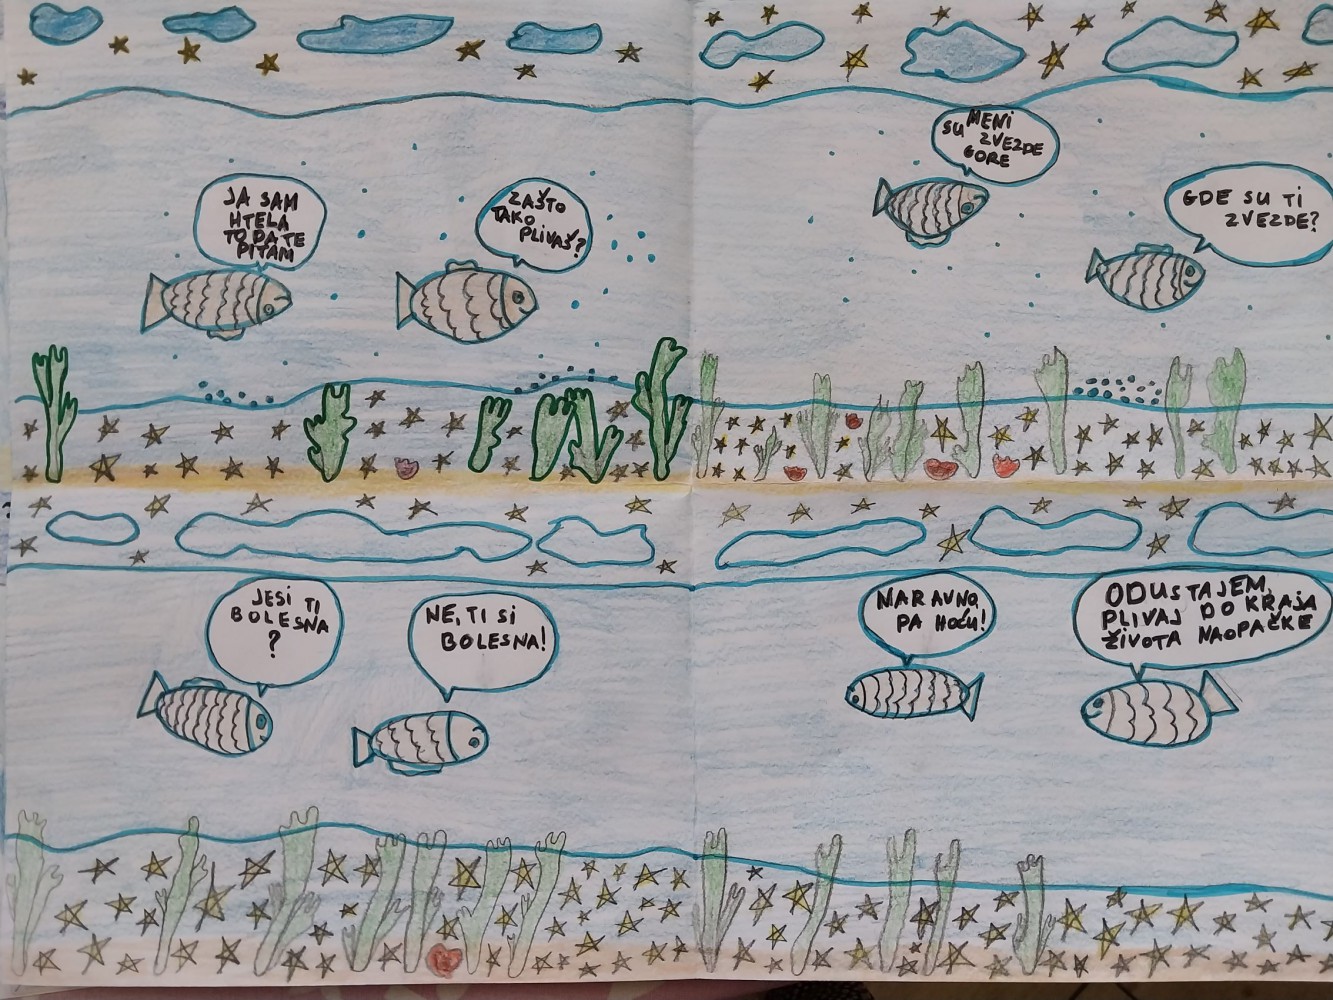 JA SAM
HTELA
TO DA TE
PITAM
ZAŠTO
TAKO
PLIVAŠ?
SU MENI
ZVEZDE
GORE
GDE SU TI
ZVEZDE?
JESI TI
BOLESNA
?
NE, TI SI
BOLESNA!
NARAVNO,
PA HOĆU!
ODUSTAJEM,
PLIVAJ DO KRAJA
ŽIVOTA NAOPAČKE